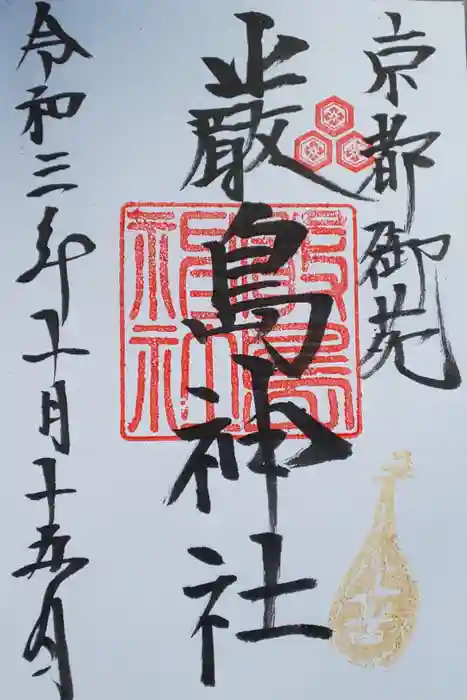 京都御苑
厳島神社
令和三年十月十五日
嚴島
神社